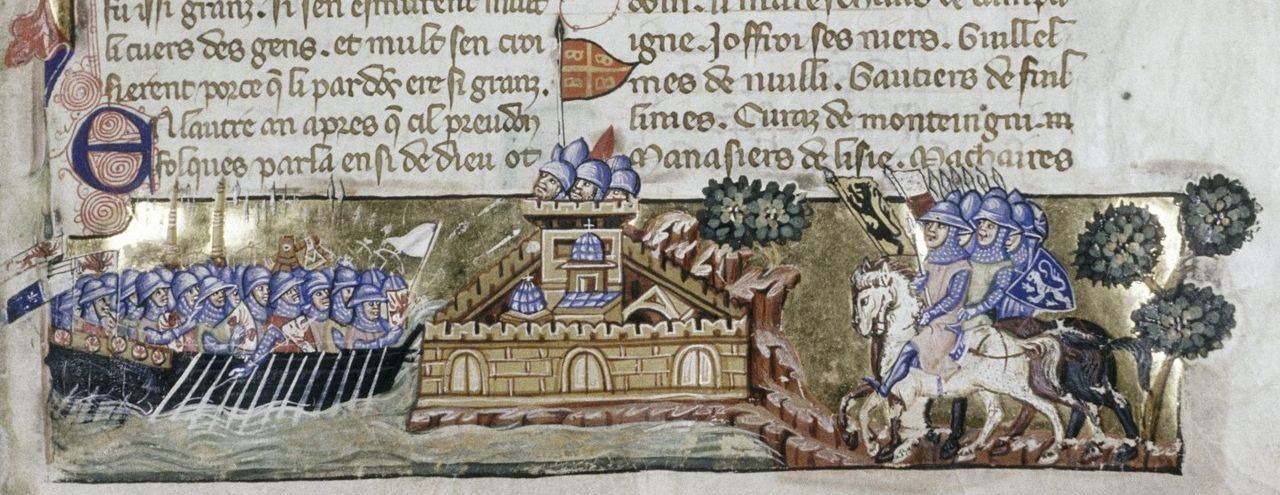 fu issi granz. si sen esmurent mult
li cuers des gens. et mult sen croi
sierent porce q̃ li pardõs ere si granz.
EN lautre an apres q̃ cil preudon
folques parla ensi de dieu ot
doin. li mareschaus de champa
igne. Joffroi ses niers. Guillel
mes de nuilli. Gautiers de fuil
limes. Euraz de monteingni. m
Manasiers de lisle. Machaires